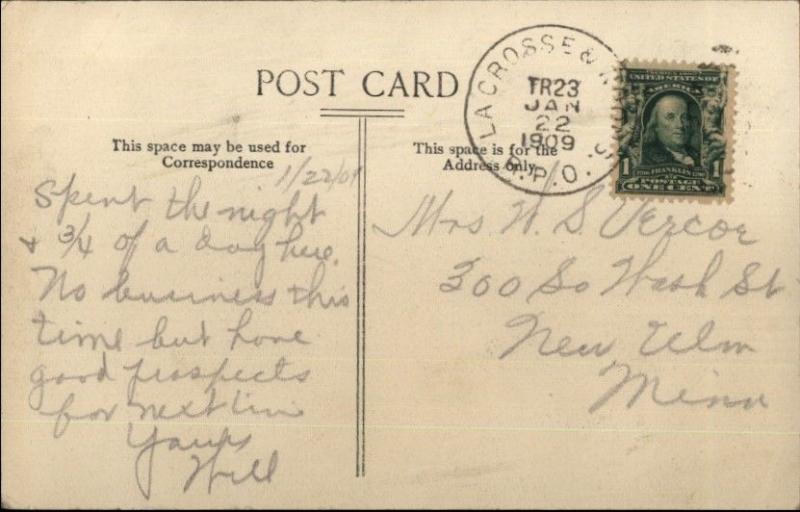 POST CARD
This space may be used for
Correspondence
1/22/09
Spent the night
& 3/4 of a day here.
No business this
time but have
good prospects
for next time
Yours
Will
This space is for the
Address only.
LA CROSSE &
TR23
JAN
22
1909
R.P.O.
SERIES 1902
UNITED STATES OF
AMERICA
1 FRANKLIN 1
POSTAGE
ONE CENT
Mrs W. S. Vercoe
300 So Wash St
New Ulm
Minn